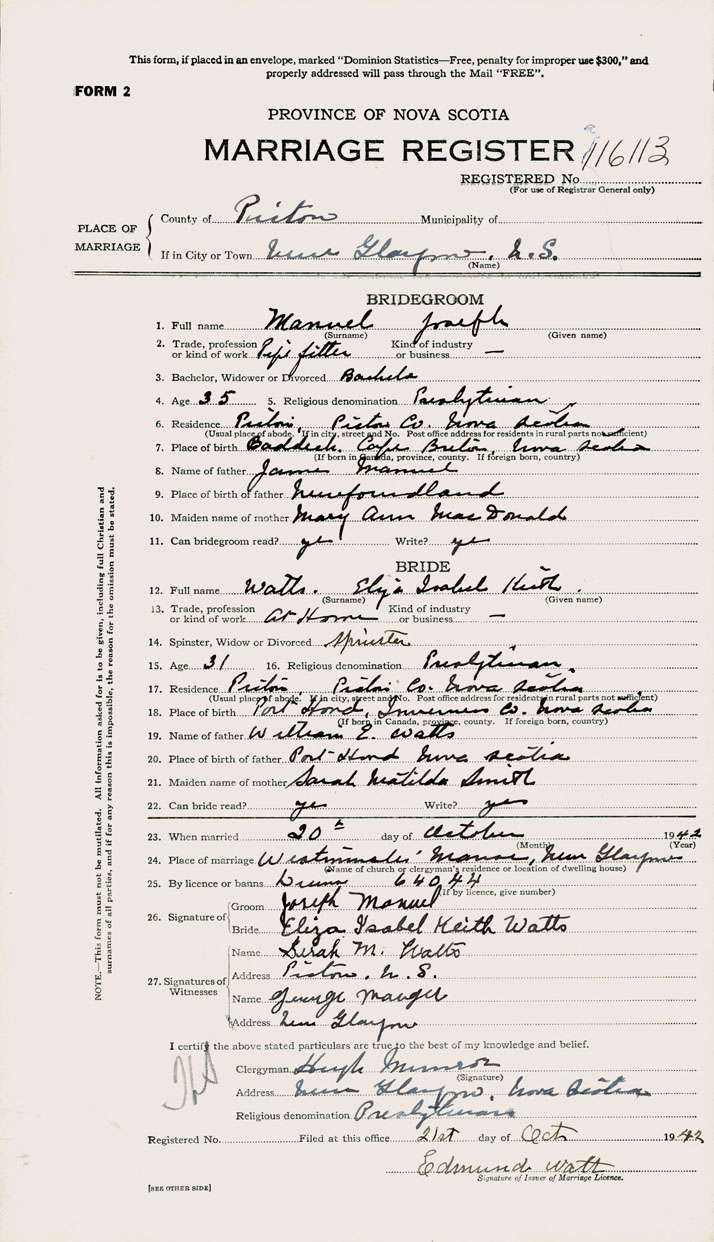 This form, if placed in an envelope, marked "Dominion Statistics—Free, penalty for improper use $300," and
properly addressed will pass through the Mail "FREE".
FORM 2
PROVINCE OF NOVA SCOTIA
MARRIAGE REGISTER 116113
REGISTERED No.
(For use of Registrar General only)
PLACE OF MARRIAGE
County of Pictou Municipality of
If in City or Town New Glasgow, N.S.
(Name)
BRIDEGROOM
1. Full name Manuel Joseph
(Surname) (Given name)
2. Trade, profession or kind of work Pipe fitter Kind of industry or business —
3. Bachelor, Widower or Divorced Bachelor
4. Age 35 5. Religious denomination Presbyterian
6. Residence Pictou, Pictou Co. Nova Scotia
(Usual place of abode. If in city, street and No. Post office address for residents in rural parts not sufficient)
7. Place of birth Baddeck, Cape Breton, Nova Scotia
(If born in Canada, province, county. If foreign born, country)
8. Name of father James Manuel
9. Place of birth of father Newfoundland
10. Maiden name of mother Mary Ann MacDonald
11. Can bridegroom read? yes Write? yes
BRIDE
12. Full name Watts. Eliza Isabel Keith.
(Surname) (Given name)
13. Trade, profession or kind of work At Home Kind of industry or business —
14. Spinster, Widow or Divorced Spinster
15. Age 31 16. Religious denomination Presbyterian.
17. Residence Pictou, Pictou Co. Nova Scotia
(Usual place of abode. If in city, street and No. Post office address for residents in rural parts not sufficient)
18. Place of birth Port Hood, Inverness Co. Nova Scotia
(If born in Canada, province, county. If foreign born, country)
19. Name of father William E. Watts
20. Place of birth of father Port Hood Nova Scotia
21. Maiden name of mother Sarah Matilda Smith
22. Can bride read? yes Write? yes
23. When married 20th day of October 1942
(Month) (Year)
24. Place of marriage Westminster Manse, New Glasgow
(Name of church or clergyman's residence or location of dwelling house)
25. By licence or banns 64044
(If by licence, give number)
26. Signature of
Groom Joseph Manuel
Bride Eliza Isabel Keith Watts
27. Signatures of Witnesses
Name Sarah M. Watts
Address Pictou, N.S.
Name George
Address New Glasgow
I certify the above stated particulars are true to the best of my knowledge and belief.
Clergyman Hugh Munroe
(Signature)
Address New Glasgow, Nova Scotia
Religious denomination Presbyterian
Registered No. Filed at this office 21st day of Oct 1942
Edmund Watt
Signature of Issuer of Marriage Licence.
[SEE OTHER SIDE]
NOTE.—This form must not be mutilated. All information asked for is to be given, including full Christian and
surnames of all parties, and if for any reason this is impossible, the reason for the omission must be stated.